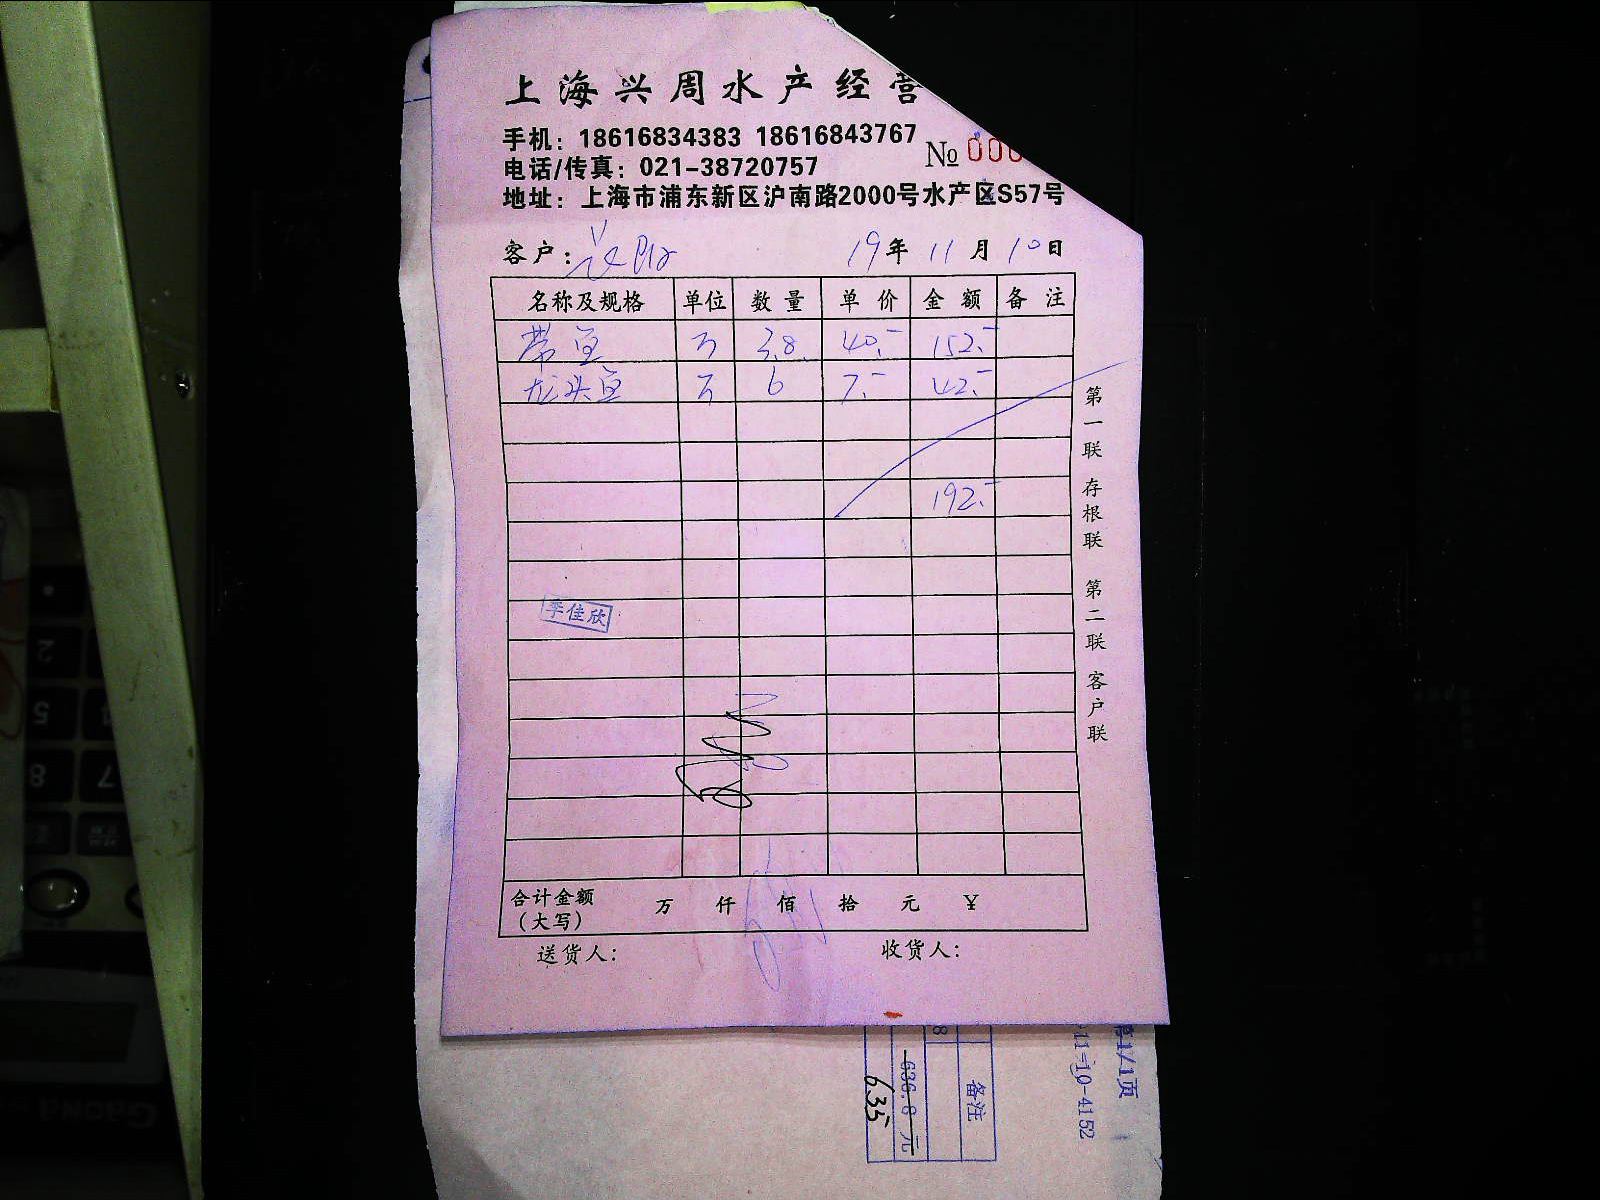 上海兴周水产经营
手机：18616834383 18616843767
电话/传真：021-38720757
No 000
地址：上海市浦东新区沪南路2000号水产区S57号
客户： 19年 11月 10日
名称及规格 单位 数量 单价 金额 备注
带鱼 斤 3.8 40.- 152.-
龙头鱼 斤 6 7.- 42.-
192.-
李佳欣
合计金额 万 仟 佰 拾 元 ¥
（大写）
送货人： 收货人：
第一联 存根联 第二联 客户联
1/1页
11-10-4152
备注
8
636.8元
635
2
5
8
7